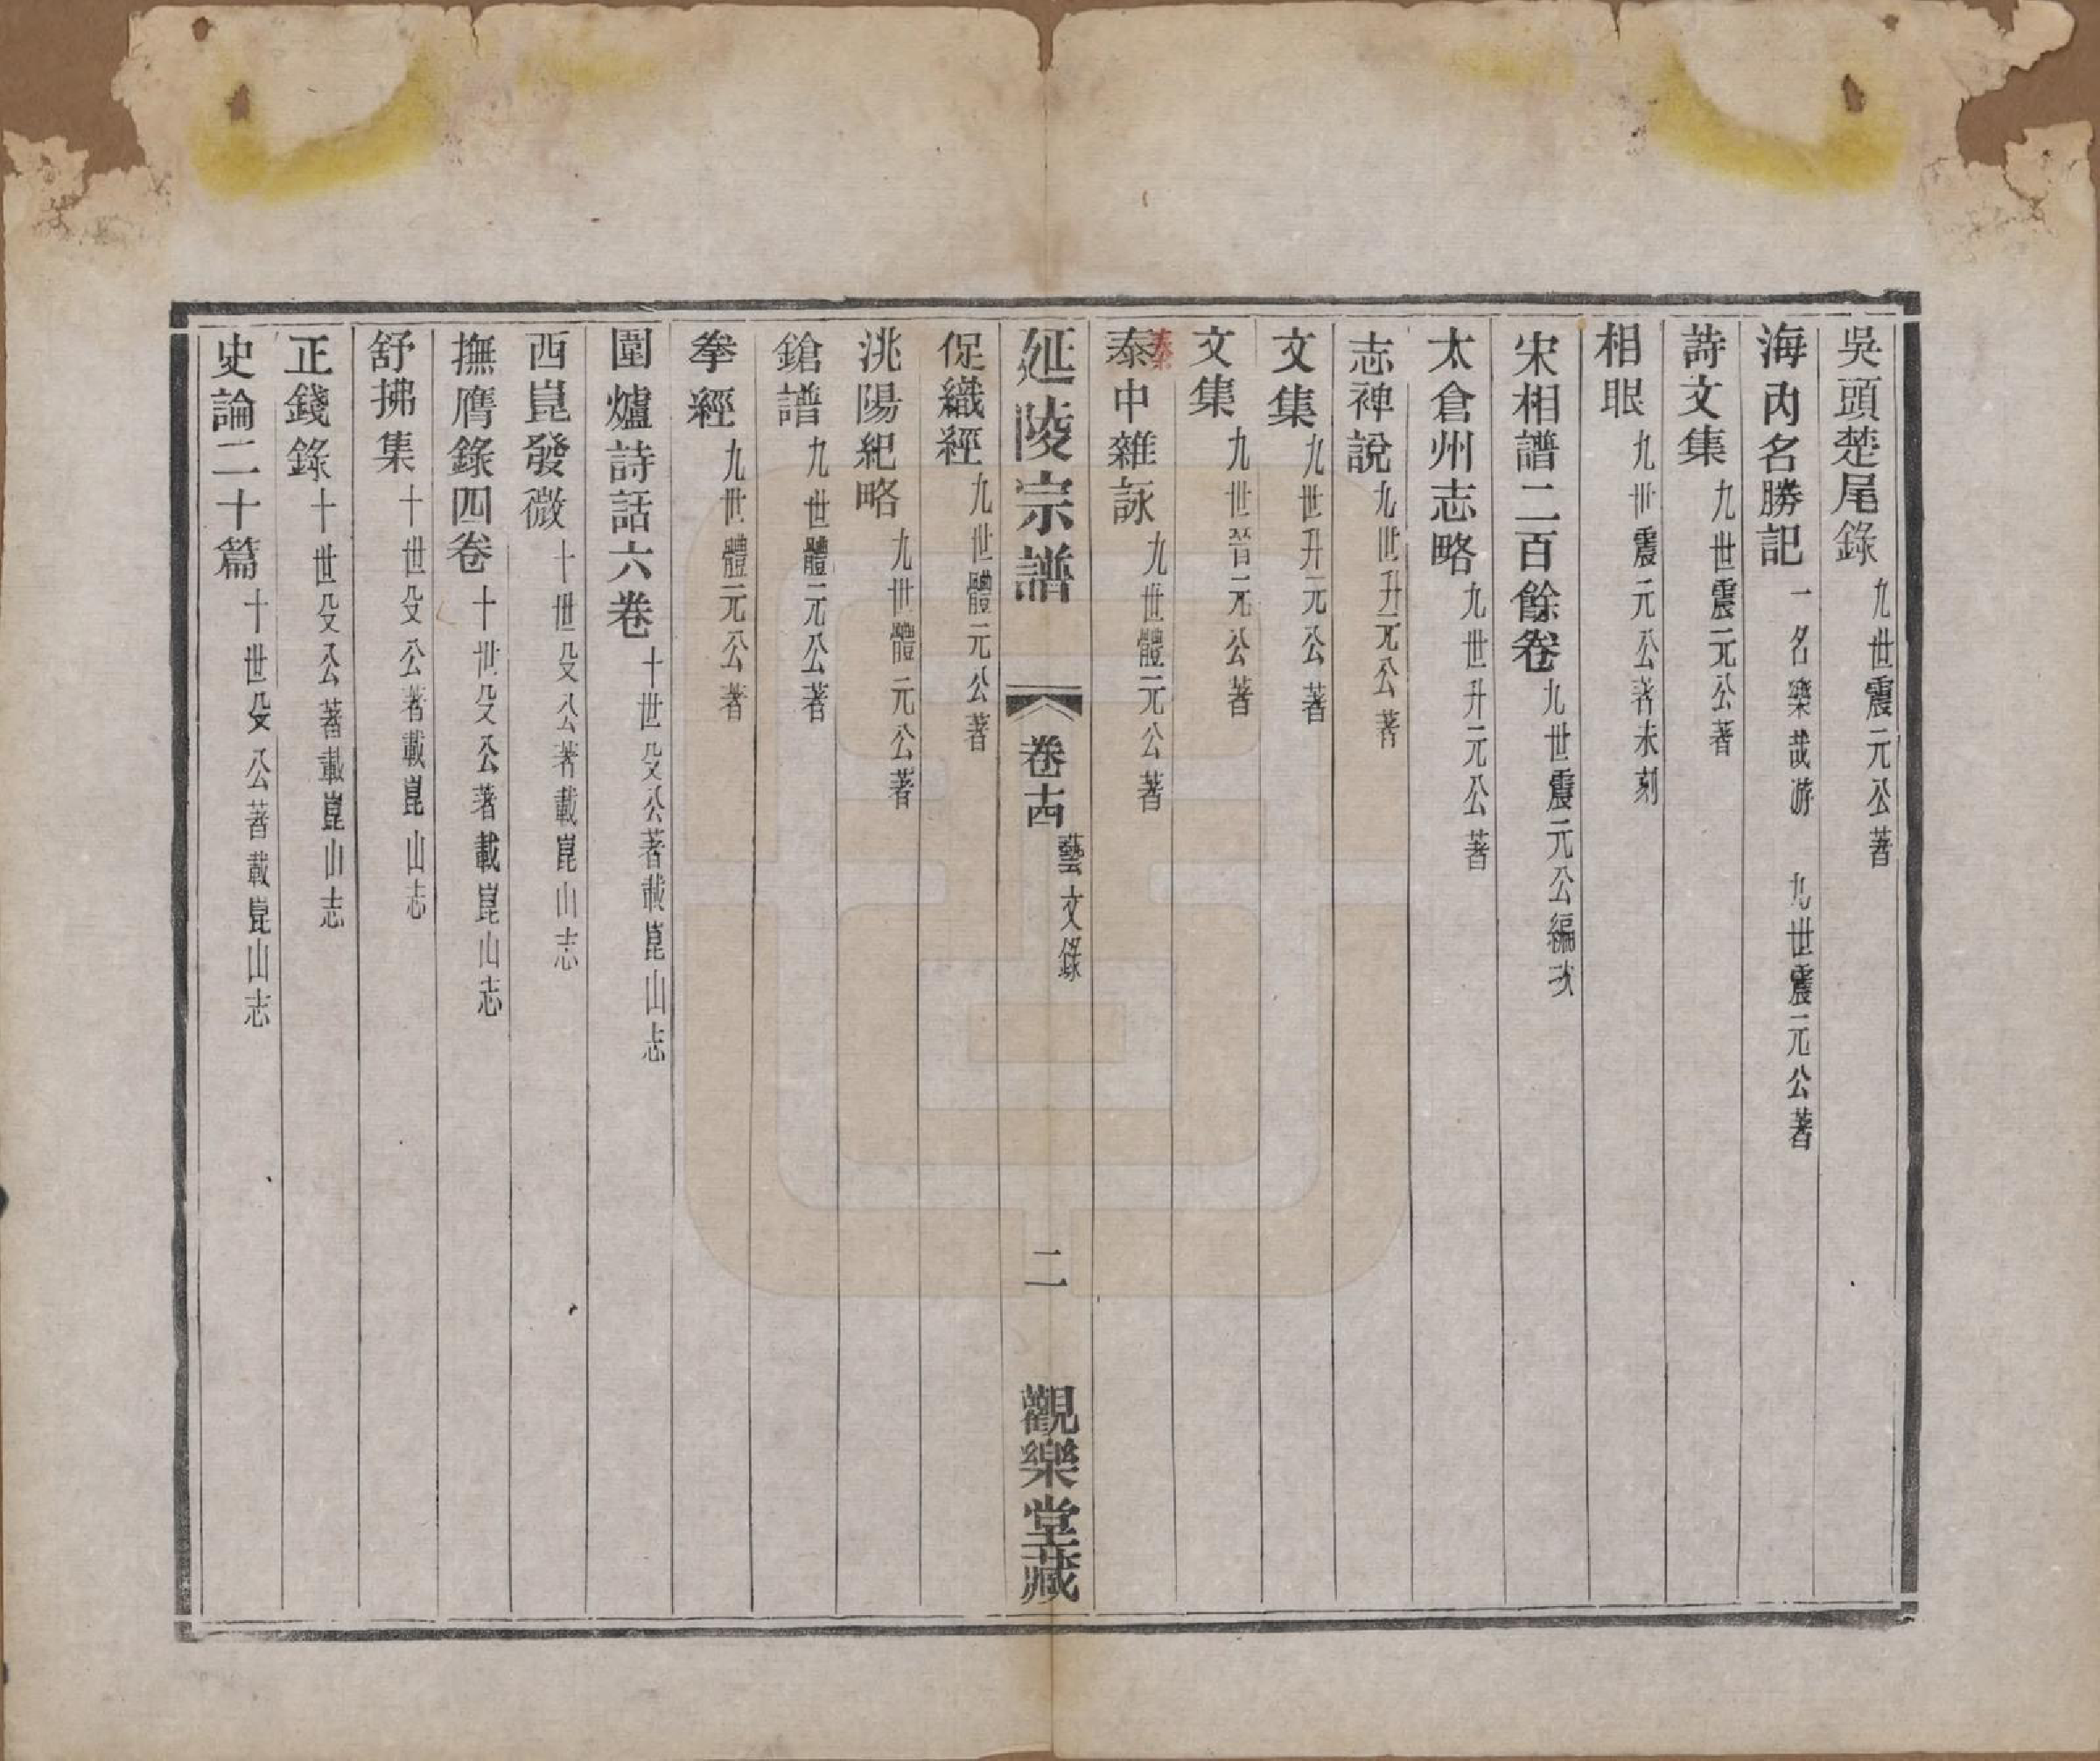 吳頭楚尾錄 九世震元公著
海內名勝記 一名樂哉游 九世震元公著
詩文集 九世震元公著
相眼 九世震元公著未刻
宋相譜二百餘卷 九世震元公編次
太倉州志略 九世升元公著
志裨說 九世升元公著
文集 九世升元公著
文集 九世晉元公著
泰中雜詠 九世體元公著
秦
延陵宗譜 卷十四 藝文錄 二 觀樂堂藏
促織經 九世體元公著
洮陽紀略 九世體元公著
鎗譜 九世體元公著
拳經 九世體元公著
圍爐詩話六卷 十世殳公著載崑山志
西崑發微 十世殳公著載崑山志
撫膺錄四卷 十世殳公著載崑山志
舒拂集 十世殳公著載崑山志
正錢錄 十世殳公著載崑山志
史論二十篇 十世殳公著載崑山志